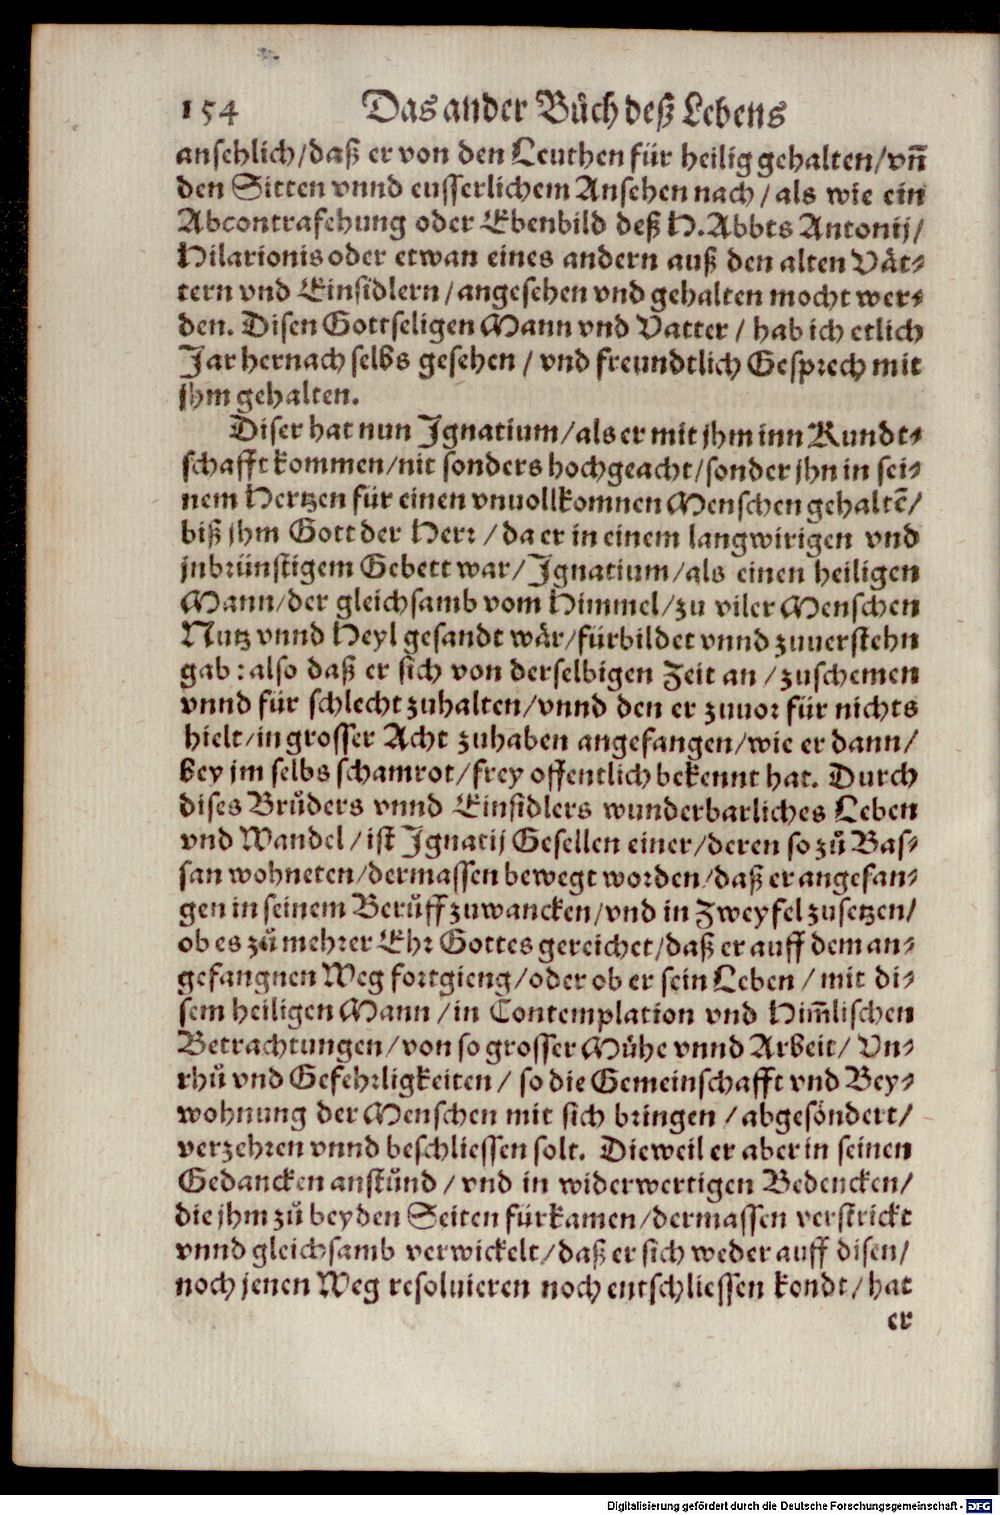 154 Das ander Bůch deß Lebens
ansehlich/daß er von den Leuthen für heilig gehalten/vñ
den Sitten vnnd eusserlichem Ansehen nach/als wie ein
Abcontrafehung oder Ebenbild deß H. Abbts Antonij/
Hilarionis oder etwan eines andern auß den alten Vät⸗
tern vnd Einsidlern/angesehen vnd gehalten mocht wer⸗
den. Disen Gottseligen Mann vnd Vatter/hab ich etlich
Jar hernach selbs gesehen/vnd freundtlich Gesprech mit
jhm gehalten.
Diser hat nun Ignatium/als er mit jhm inn Kundt⸗
schafft kommen/nit sonders hochgeacht/sonder jhn in sei⸗
nem Hertzen für einen vnuollkomnen Menschen gehaltē/
biß jhm Gott der Herr/da er in einem langwirigen vnd
jnbrünstigem Gebett war/Ignatium/als einen heiligen
Mann/der gleichsamb vom Himmel/zu viler Menschen
Nutz vnnd Heyl gesandt wär/fürbildet vnnd zuuerstehn
gab: also daß er sich von derselbigen Zeit an/zuschemen
vnnd für schlecht zuhalten/vnnd den er zuuor für nichts
hielt/in grosser Acht zuhaben angefangen/wie er dann/
bey jm selbs schamrot/frey offentlich bekennt hat. Durch
dises Brůders vnnd Einsidlers wunderbarliches Leben
vnd Wandel/ist Ignatij Gesellen einer/deren so zů Bas⸗
san wohneten/dermassen bewegt worden/daß er angefan⸗
gen in seinem Berůff zuwancken/vnd in Zweyfel zusetzen/
ob es zů mehrer Ehr Gottes gereichet/daß er auff dem an⸗
gefangnen Weg fortgieng/oder ob er sein Leben/mit di⸗
sem heiligen Mann/in Contemplation vnd Him̃lischen
Betrachtungen/von so grosser Mühe vnnd Arbeit/Vn⸗
rhů vnd Gefehrligkeiten/so die Gemeinschafft vnd Bey⸗
wohnung der Menschen mit sich bringen/abgesöndert/
verzehren vnnd beschliessen solt. Dieweil er aber in seinen
Gedancken anstůnd/vnd in widerwertigen Bedencken/
die jhm zů beyden Seiten fürkamen/dermassen verstrickt
vnnd gleichsamb verwickelt/daß er sich weder auff disen/
noch jenen Weg resoluieren noch entschliessen kondt/hat
er
Digitalisierung gefördert durch die Deutsche Forschungsgemeinschaft - DFG